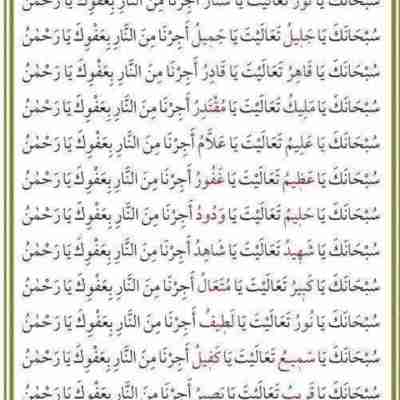 سُبْحَانَكَ يَا نُورُ تَعَالَيْتَ يَا سَتَّارُ أَجِرْنَا مِنَ النَّارِ بِعَفْوِكَ يَا رَحْمٰنُ
سُبْحَانَكَ يَا جَلِيلُ تَعَالَيْتَ يَا جَمِيلُ أَجِرْنَا مِنَ النَّارِ بِعَفْوِكَ يَا رَحْمٰنُ
سُبْحَانَكَ يَا قَاهِرُ تَعَالَيْتَ يَا قَادِرُ أَجِرْنَا مِنَ النَّارِ بِعَفْوِكَ يَا رَحْمٰنُ
سُبْحَانَكَ يَا مَلِيكُ تَعَالَيْتَ يَا مُقْتَدِرُ أَجِرْنَا مِنَ النَّارِ بِعَفْوِكَ يَا رَحْمٰنُ
سُبْحَانَكَ يَا عَلِيمُ تَعَالَيْتَ يَا عَلَّامُ أَجِرْنَا مِنَ النَّارِ بِعَفْوِكَ يَا رَحْمٰنُ
سُبْحَانَكَ يَا عَظِيمُ تَعَالَيْتَ يَا غَفُورُ أَجِرْنَا مِنَ النَّارِ بِعَفْوِكَ يَا رَحْمٰنُ
سُبْحَانَكَ يَا حَلِيمُ تَعَالَيْتَ يَا وَدُودُ أَجِرْنَا مِنَ النَّارِ بِعَفْوِكَ يَا رَحْمٰنُ
سُبْحَانَكَ يَا شَهِيدُ تَعَالَيْتَ يَا شَاهِدُ أَجِرْنَا مِنَ النَّارِ بِعَفْوِكَ يَا رَحْمٰنُ
سُبْحَانَكَ يَا كَبِيرُ تَعَالَيْتَ يَا مُتَعَالُ أَجِرْنَا مِنَ النَّارِ بِعَفْوِكَ يَا رَحْمٰنُ
سُبْحَانَكَ يَا نُورُ تَعَالَيْتَ يَا لَطِيفُ أَجِرْنَا مِنَ النَّارِ بِعَفْوِكَ يَا رَحْمٰنُ
سُبْحَانَكَ يَا سَمِيعُ تَعَالَيْتَ يَا كَفِيلُ أَجِرْنَا مِنَ النَّارِ بِعَفْوِكَ يَا رَحْمٰنُ
سُبْحَانَكَ يَا قَرِيبُ تَعَالَيْتَ يَا بَصِيرُ أَجِرْنَا مِنَ النَّارِ بِعَفْوِكَ يَا رَحْمٰنُ